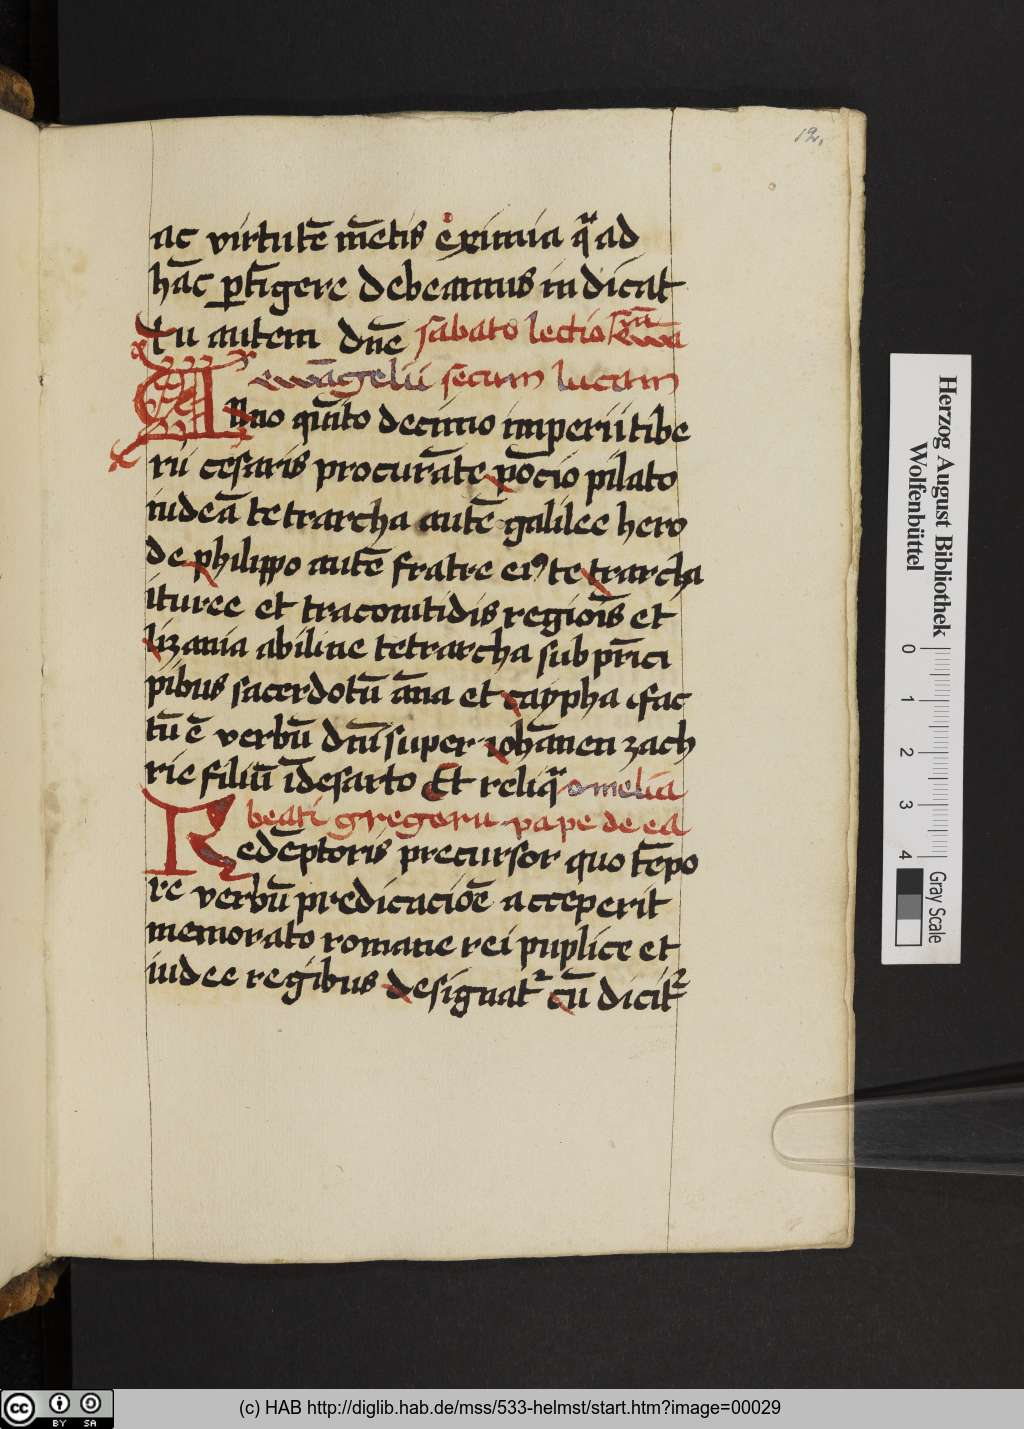 12.
ac virtutē m̄etis eximia qͣ ad
hāc ꝑtīgere debeamus indicat
tu autem dn̄e sabato lectio sc̄i
ewāgelii secum lucam
Anno qn̄to decimo imperii tibe
rii cesaris procurāte pōcio pilato
iudeā tetrarcha autē galilee hero
de philippo autē fratre eiꝰ te trarcha
ituree et traconitidis regiōis et
lizania abiline tetrarcha sub pn̄ci
pibus sacerdotū āna et caypha fac
tū ē verbū dn̄i super iohānen zach
rie filiū ī deserto Et reliqͣ omelia
beati gregorii pape de ea
Redēptoris precursor quo tēpo
re verbū predicaciōe acceperit
memorato romane rei puplice et
iudee regibus designat᷑ cū dicit᷑
Herzog August Bibliothek
Wolfenbüttel
0 1 2 3 4
Gray Scale
cc BY SA
(c) HAB http://diglib.hab.de/mss/533-helmst/start.htm?image=00029